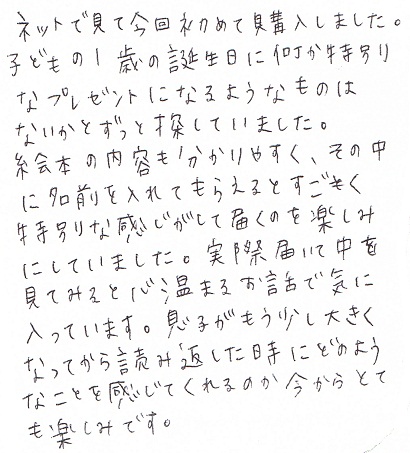 ネットで見て今回初めて購入しました。
子どもの1歳の誕生日に何か特別
なプレゼントになるようなものは
ないかとずっと探していました。
絵本の内容も分かりやすく、その中
に名前を入れてもらえるとすごく
特別な感じがして届くのを楽しみ
にしていました。実際届いて中を
見てみると心温まるお話で気に
入っています。息子がもう少し大きく
なってから読み返した時にどのよう
なことを感じてくれるのか今からとて
も楽しみです。